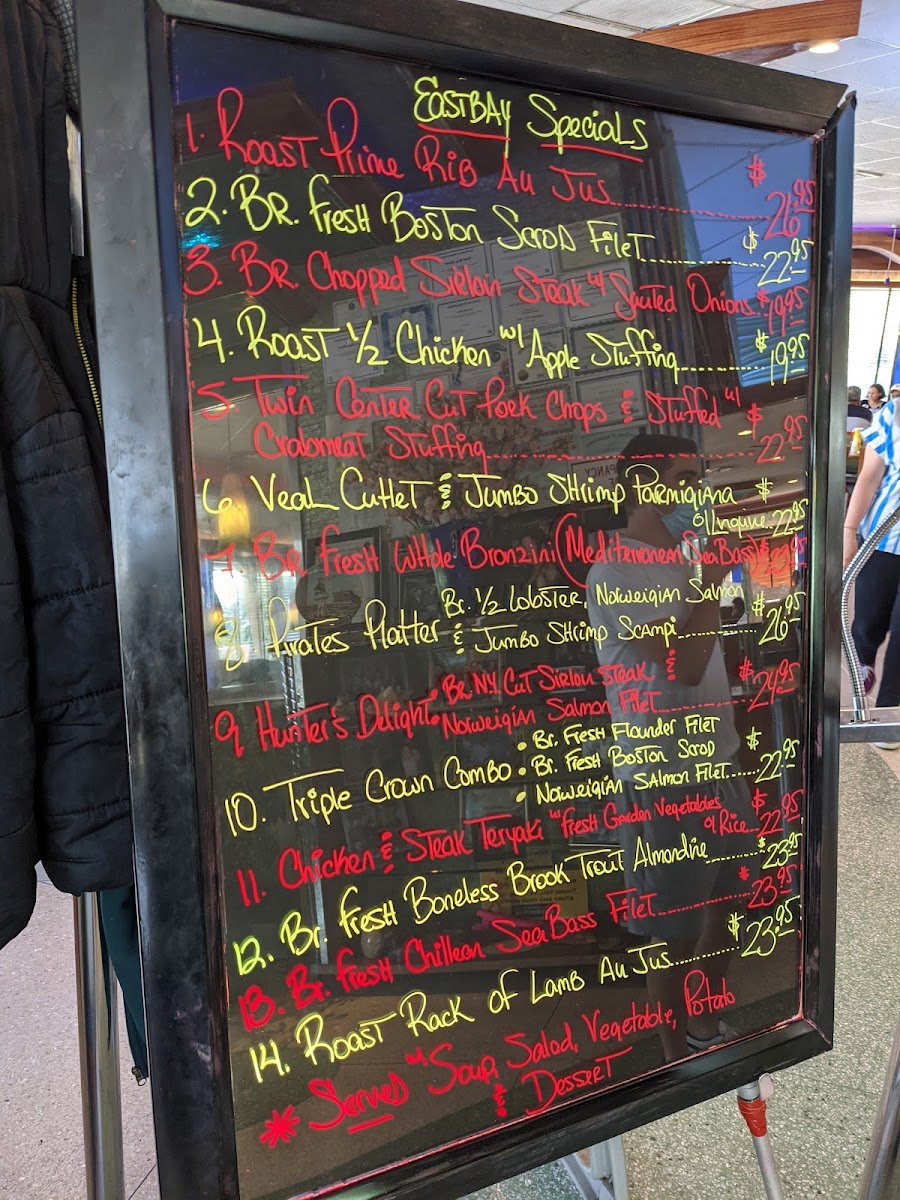 EASTBAY SPECIALS
1. ROAST PRIME RIB AU JUS $26.95
2. BR. FRESH BOSTON SCROD FILET $22.95
3. BR. CHOPPED SIRLOIN STEAK W/ SAUTED ONIONS $19.95
4. ROAST 1/2 CHICKEN W/ APPLE STUFFING $19.95
5. TWIN CENTER CUT PORK CHOPS & STUFFED W/
CRABMEAT STUFFING $22.95
6. VEAL CUTLET & JUMBO SHRIMP PARMIGIANA
O/LINGUINE $22.95
7. BR FRESH WHOLE BRONZINI (MEDITERRONEAN SEA BASS)
8. PIRATES PLATTER BR. 1/2 LOBSTER, NORWEIGIAN SALMON
& JUMBO SHRIMP SCAMPI $26.95
9 HUNTER'S DELIGHT BR. N.Y. CUT SIRLOIN STEAK &
NORWEIGIAN SALMON FILET $24.95
10. TRIPLE CROWN COMBO • BR. FRESH FLOUNDER FILET
• BR. FRESH BOSTON SCROD
• NORWEIGIAN SALMON FILET $22.95
11. CHICKEN & STEAK TERYAKI W/ FRESH GARDEN VEGETABLES
O/ RICE $22.95
12. BR. FRESH BONELESS BROOK TROUT ALMONDINE $23.95
13. BR. FRESH CHILLEAN SEA BASS FILET $23.95
14. ROAST RACK OF LAMB AU JUS $23.95
* SERVED W/ SOUP, SALAD, VEGETABLE, POTATO
& DESSERT